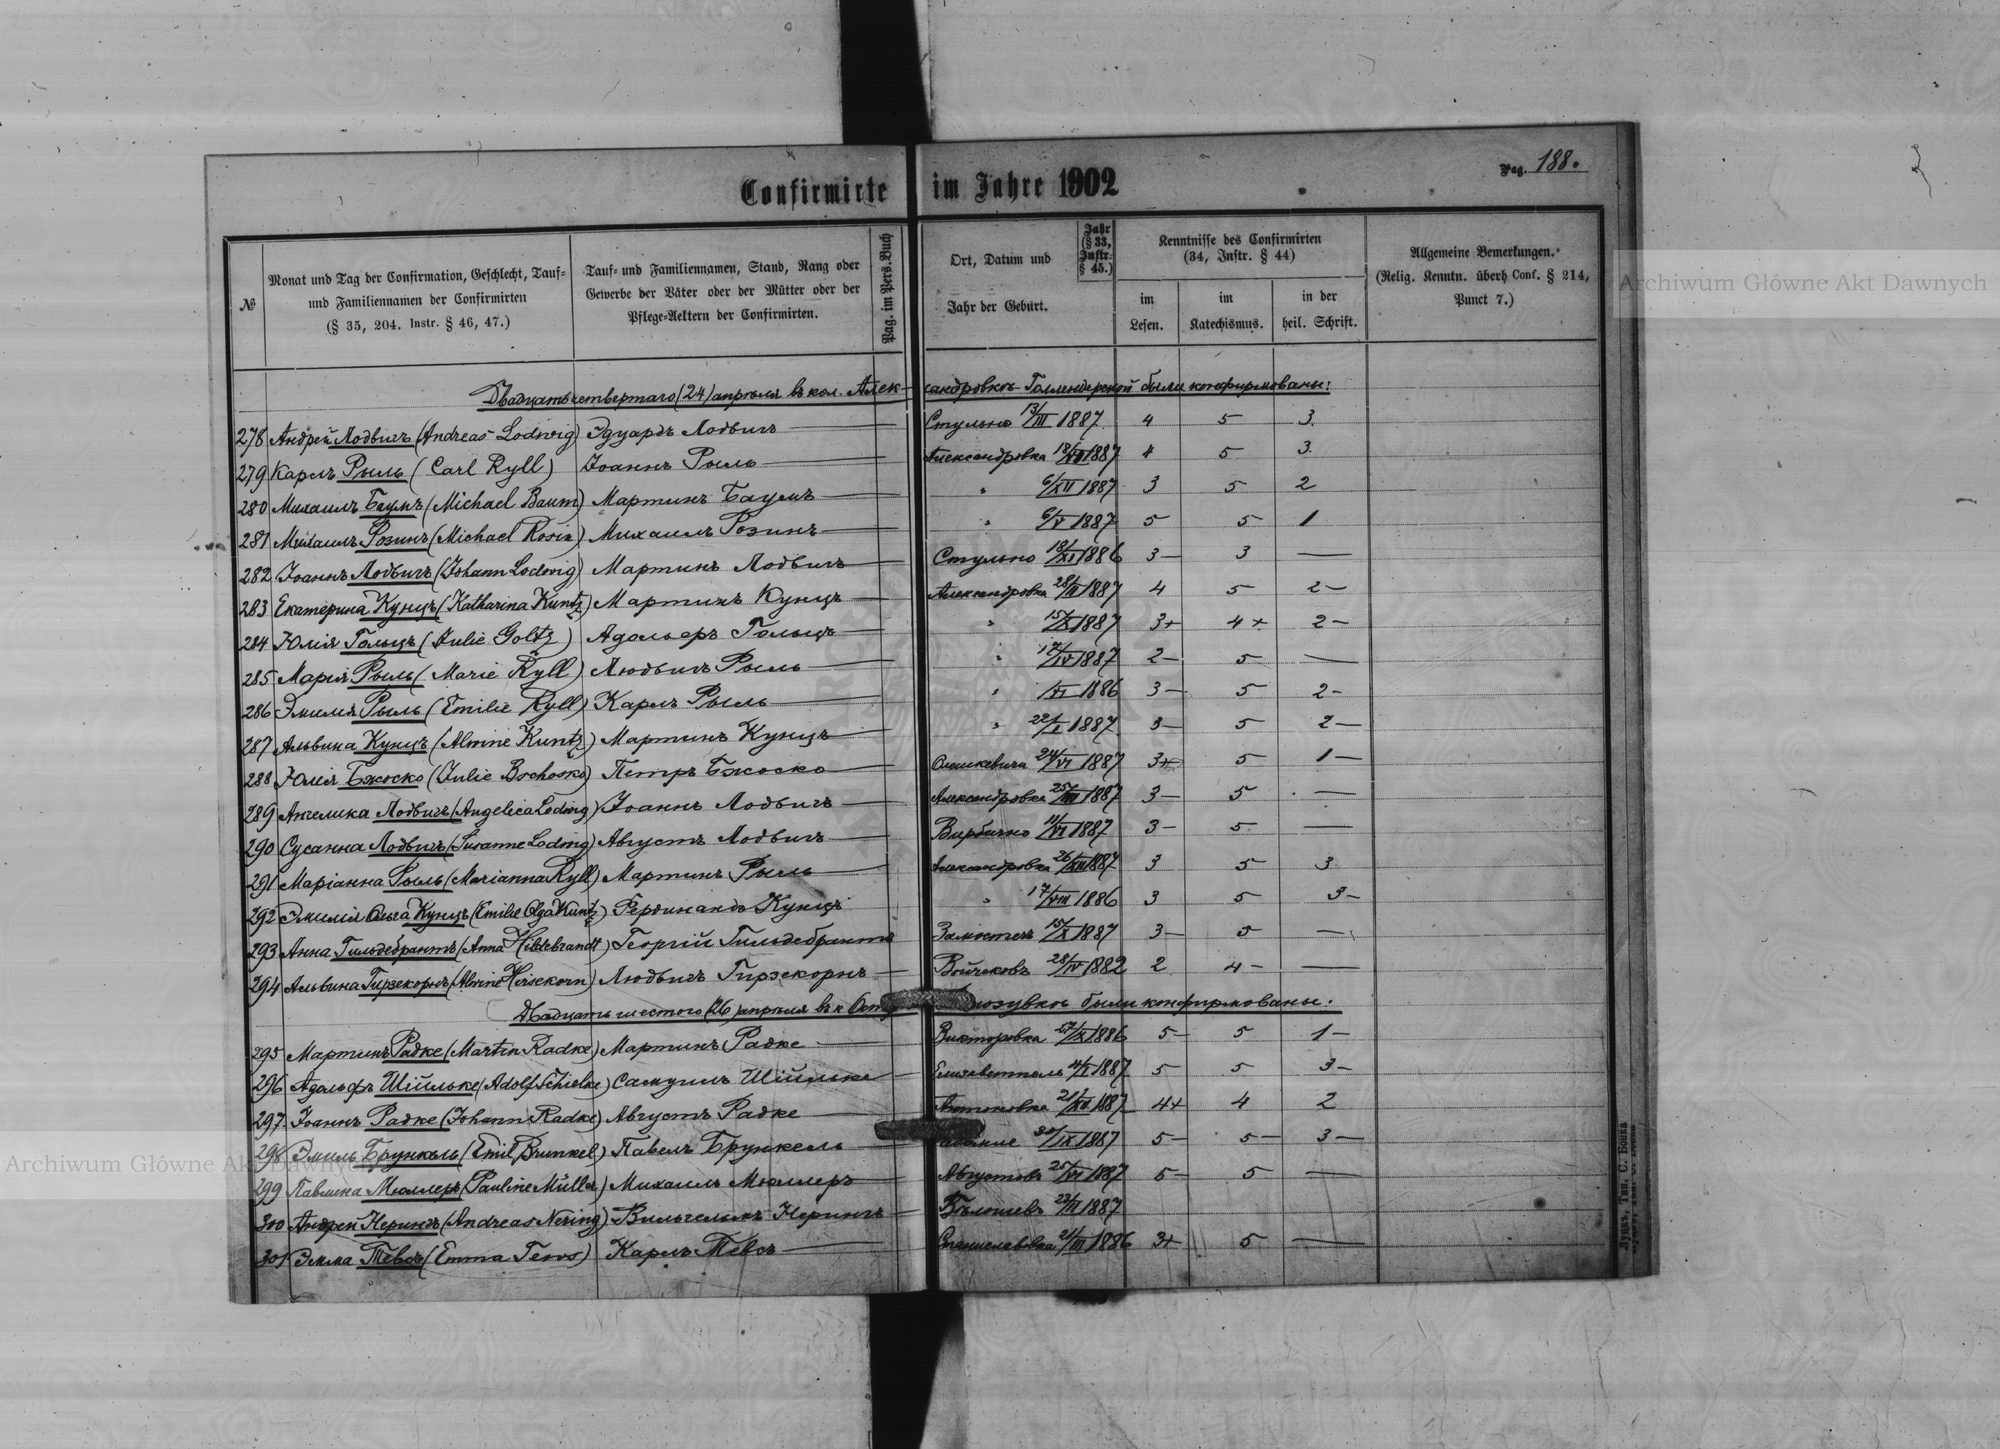 Pag. 188.
Confirmirte im Jahre 1902
№
Monat und Tag der Confirmation, Geschlecht, Tauf-
und Familiennamen der Confirmirten
(§ 35, 204. Instr. § 46, 47.)
Tauf- und Familiennamen, Stand, Rang oder
Gewerbe der Väter oder der Mütter oder der
Pflege-Aeltern der Confirmirten.
Pag. im Pers.Buch
Ort, Datum und
Jahr der Geburt.
Jahr
(§ 33,
Instr.
§ 45.)
Kenntnisse des Confirmirten
(34, Instr. § 44)
im
Lesen.
im
Katechismus.
in der
heil. Schrift.
Allgemeine Bemerkungen.
(Relig. Kenntn. überh Conf. § 214,
Punct 7.)
Archiwum Główne Akt Dawnych
Двадцать четвертаго (24) апрѣля въ кол. Александровкѣ-Голлендерской были конфирмованы:
278 Андрей Лодвигъ (Andreas Lodwig) Эдуардъ Лодвигъ — Стульно 13/III 1887 4 5 3.
279 Карлъ Рыль (Carl Ryll) Іоаннъ Рыль — Александровка 1887 4 5 3.
280 Михаилъ Баумъ (Michael Baum) Мартинъ Баумъ — " 6/XII 1887 3 5 2
281 Михаилъ Розинъ (Michael Rosin) Михаилъ Розинъ — " 6/V 1887 5 5 1
282 Іоаннъ Лодвигъ (Johann Lodwig) Мартинъ Лодвигъ — Стульно 18/XI 1886 3— 3 —
283 Екатерина Кунцъ (Katharina Kuntz) Мартинъ Кунцъ — Александровка 28/II 1887 4 5 2—
284 Юлія Гольцъ (Julie Goltz) Адольфъ Гольцъ — " 15/X 1887 3+ 4+ 2—
285 Марія Рыль (Marie Ryll) Людвигъ Рыль — " 17/IV 1887 2— 5 —
286 Эмилія Рыль (Emilie Ryll) Карлъ Рыль — " 1/VI 1886 3— 5 2-
287 Альвина Кунцъ (Alwine Kuntz) Мартинъ Кунцъ — " 22/I 1887 3— 5 2—
288 Юлія Бжоско (Julie Bschosko) Петръ Бжоско — 24/VI 1887 3+ 5 1—
289 Ангелика Лодвигъ (Angelica Lodwig) Іоаннъ Лодвигъ — Александровка 1887 3— 5 —
290 Сусанна Лодвигъ (Susanne Lodwig) Августъ Лодвигъ — Вирбично 11/VI 1887 3— 5 —
291 Маріанна Рыль (Marianna Ryll) Мартинъ Рыль — Александровка 1887 3 5 3
292 Эмилія Ольга Кунцъ (Emilie Olga Kuntz) Фердинандъ Кунцъ " 17/VIII 1886 3 5 3—
293 Анна Гильдебрантъ (Anna Hildebrandt) Георгій Гильдебрантъ 15/X 1887 3— 5 —
294 Альвина Гирзекорнъ (Alvine Hirsekorn) Людвигъ Гирзекорнъ — Войчековъ 28/IV 1882 2 4— —
Двадцать шестого (26) апрѣля въ к были конфирмованы:
295 Мартинъ Радке (Martin Radke) Мартинъ Радке — Викторовка 1886 5— 5 1—
296 Адольфъ Шійльке (Adolf Schielke) Самуилъ Шійльке — Елизаветполь 1887 5 5 3—
297. Іоаннъ Радке (Johann Radke) Августъ Радке — Антоновка 1887 4+ 4 2
298 Эмиль Брункель (Emil Brunkel) Павелъ Брункель — 30/IX 1887 5— 5— 3—
299 Павлина Мюллеръ (Pauline Müller) Михаилъ Мюллеръ — Августовъ 25/VI 1887 5— 5 —
300 Андрей Нерингъ (Andreas Nering) Вильгельмъ Нерингъ — 1887
301 Эмма Тевсъ (Emma Tews) Карлъ Тевсъ — 21/III 1886 3+ 5 —
Archiwum Główne Akt Dawnych